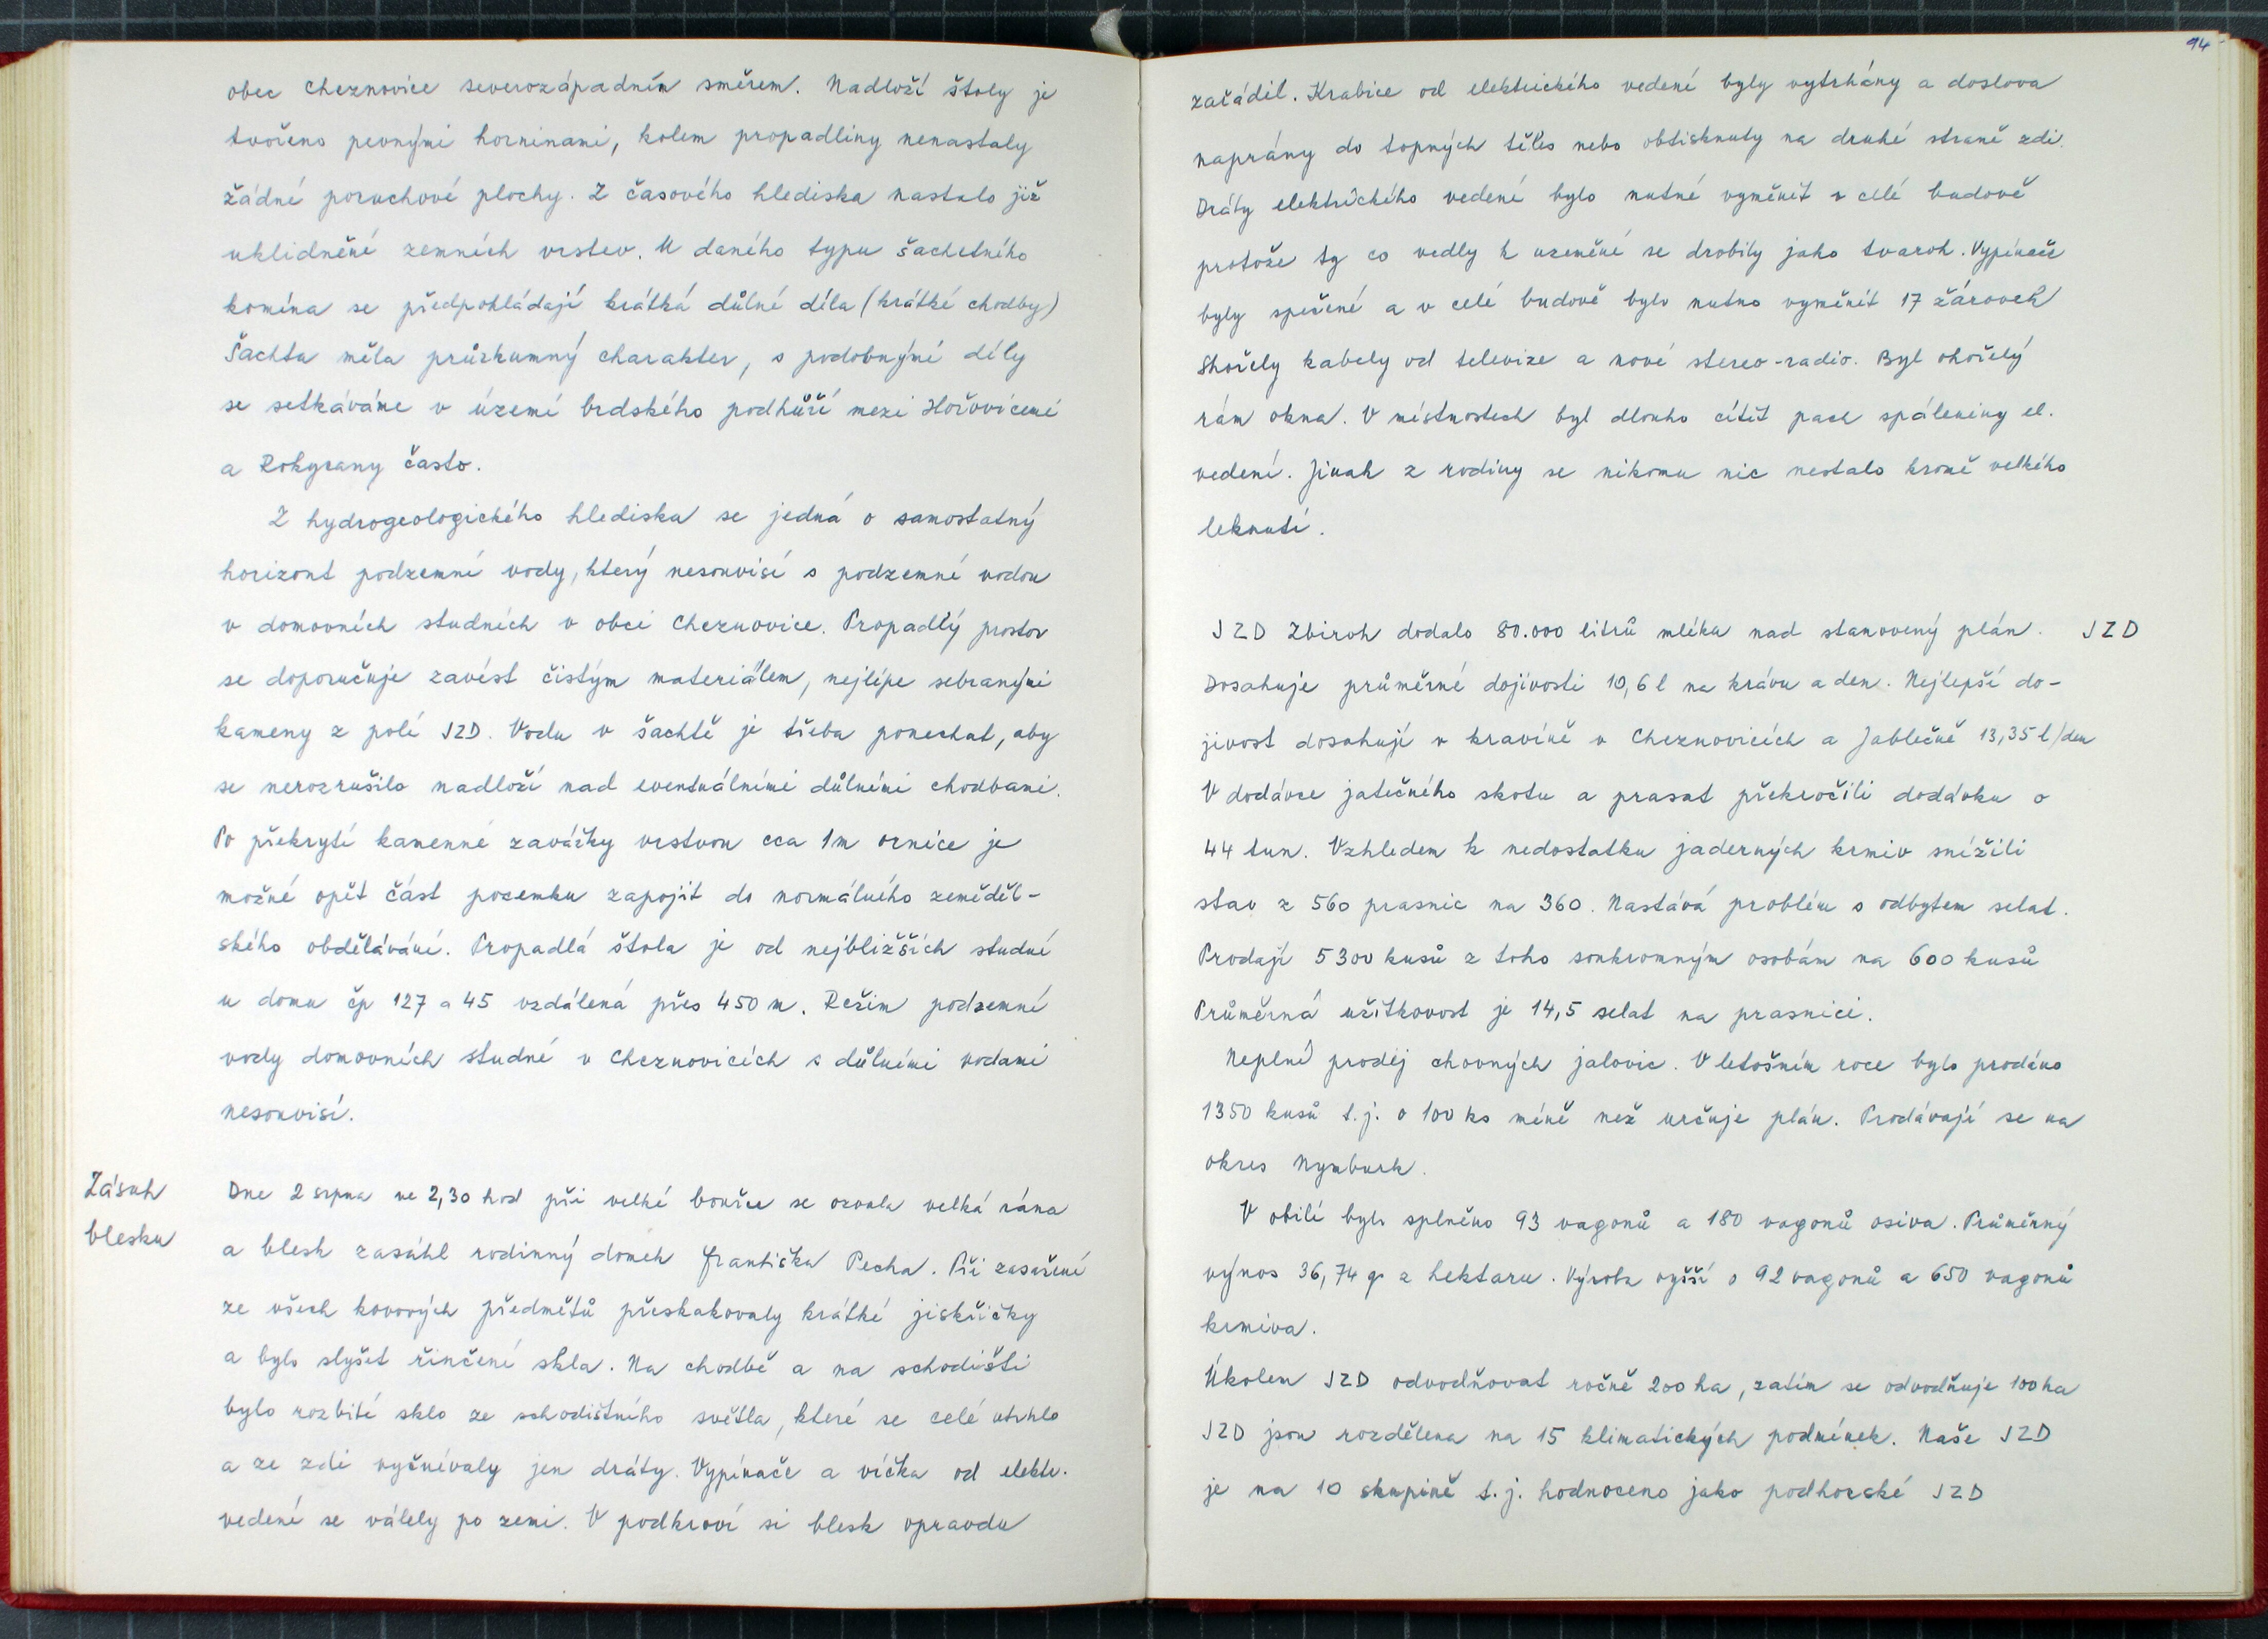 obec Cheznovice severozápadním směrem. Nadloží štoly je
tvořeno pevnými horninami, kolem propadliny nenastaly
žádné poruchové plochy. Z časového hlediska nastalo již
uklidnění zemních vrstev. U daného typu šachetního
komína se předpohládají krátká důlní díla (krátké chodby)
Šachta měla průzkumný charakter, s podobnými díly
se setkáváme v území brdského podhůří mezi Hořovicemi
a Rokycany často.
Z hydrogeologického hlediska se jedná o samostatný
horizont podzemní vody, který nesouvisí s podzemní vodou
v domovních studních v obci Cheznovice. Propadlý prostor
se doporučuje zavést čistým materiálem, nejlépe sebranými
kameny z polí JZD. Vodu v šachtě je třeba ponechat, aby
se nerozrušilo nadloží nad eventuálními důlními chodbami.
Po překrytí kamenné zavážky vrstvou cca 1m ornice je
možné opět část pozemku zapojit do normálního zeměděl-
ského obdělávání. Propadlá štola je od nejbližších studní
u domu čp 127 a 45 vzdálená přes 450 m. Režim podzemní
vody domovních studní v Cheznovicích s důlními vodami
nesouvisí.
Zásah
blesku
Dne 2 srpna ve 2,30 hod při velké bouřce se ozvala velká rána
a blesk zasáhl rodinný domek Františka Pecha. Při zasažení
ze všech kovových předmětů přeskakovaly krátké jiskřičky
a bylo slyšet řinčení skla. Na chodbě a na schodišti
bylo rozbité sklo ze schodištního světla, které se celé utrhlo
a ze zdi vyčnívaly jen dráty. Vypínače a víčka od elektr.
vedení se válely po zemi. V podkroví si blesk opravdu
94
zařádil. Krabice od elektrického vedení byly vytrhány a doslova
naprány do topných těles nebo obtisknuty na druhé straně zdi.
Dráty elektrického vedení bylo nutné vyměnit v celé budově
protože ty co vedly k uzemění se drobily jako tvaroh. Vypínače
byly spečené a v celé budově bylo nutno vyměnit 17 žárovek
Shořely kabely od televize a nové stereo-radio. Byl ohořelý
rám okna. V místnostech byl dlouho cítit pach spáleniny el.
vedení. Jinak z rodiny se nikomu nic nestalo kromě velkého
leknutí.
JZD Zbiroh dodalo 80.000 litrů mléka nad stanovený plán.
JZD
Dosahuje průměrné dojivosti 10,6 l na krávu a den. Nejlepší do-
jivost dosahují v kravíně v Cheznovicích a Jablečně 13,35 l/den
V dodávce jatečného skotu a prasat překročili dodávku o
44 tun. Vzhledem k nedostatku jaderných krmiv snížili
stav z 560 prasnic na 360. Nastává problém s odbytem selat.
Prodají 5300 kusů z toho soukromným osobám na 600 kusů
Průměrná užitkovost je 14,5 selat na prasnici.
Neplní prodej chovných jalovic. V letošním roce bylo prodáno
1350 kusů t.j. o 100 ks méně než určuje plán. Prodávají se na
okres Nymburk.
V obilí bylo splněno 93 vagonů a 180 vagonů osiva. Průměrný
výnos 36,74 q z hektaru. Výroba vyšší o 92 vagonů a 650 vagonů
krmiva.
Úkolem JZD odvodňovat ročně 200 ha, zatím se odvodňuje 100 ha
JZD jsou rozdělena na 15 klimatických podmínek. Naše JZD
je na 10 skupině t.j. hodnoceno jako podhorské JZD